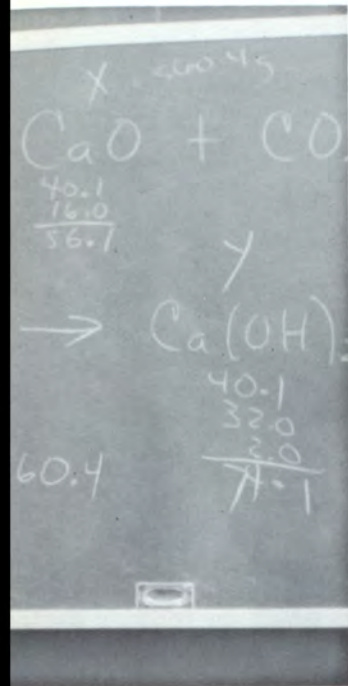 X
CaO + CO
40.1
16.0
56.1
Y
→ Ca(OH)
40.1
32.0
2.0
74.1
60.4